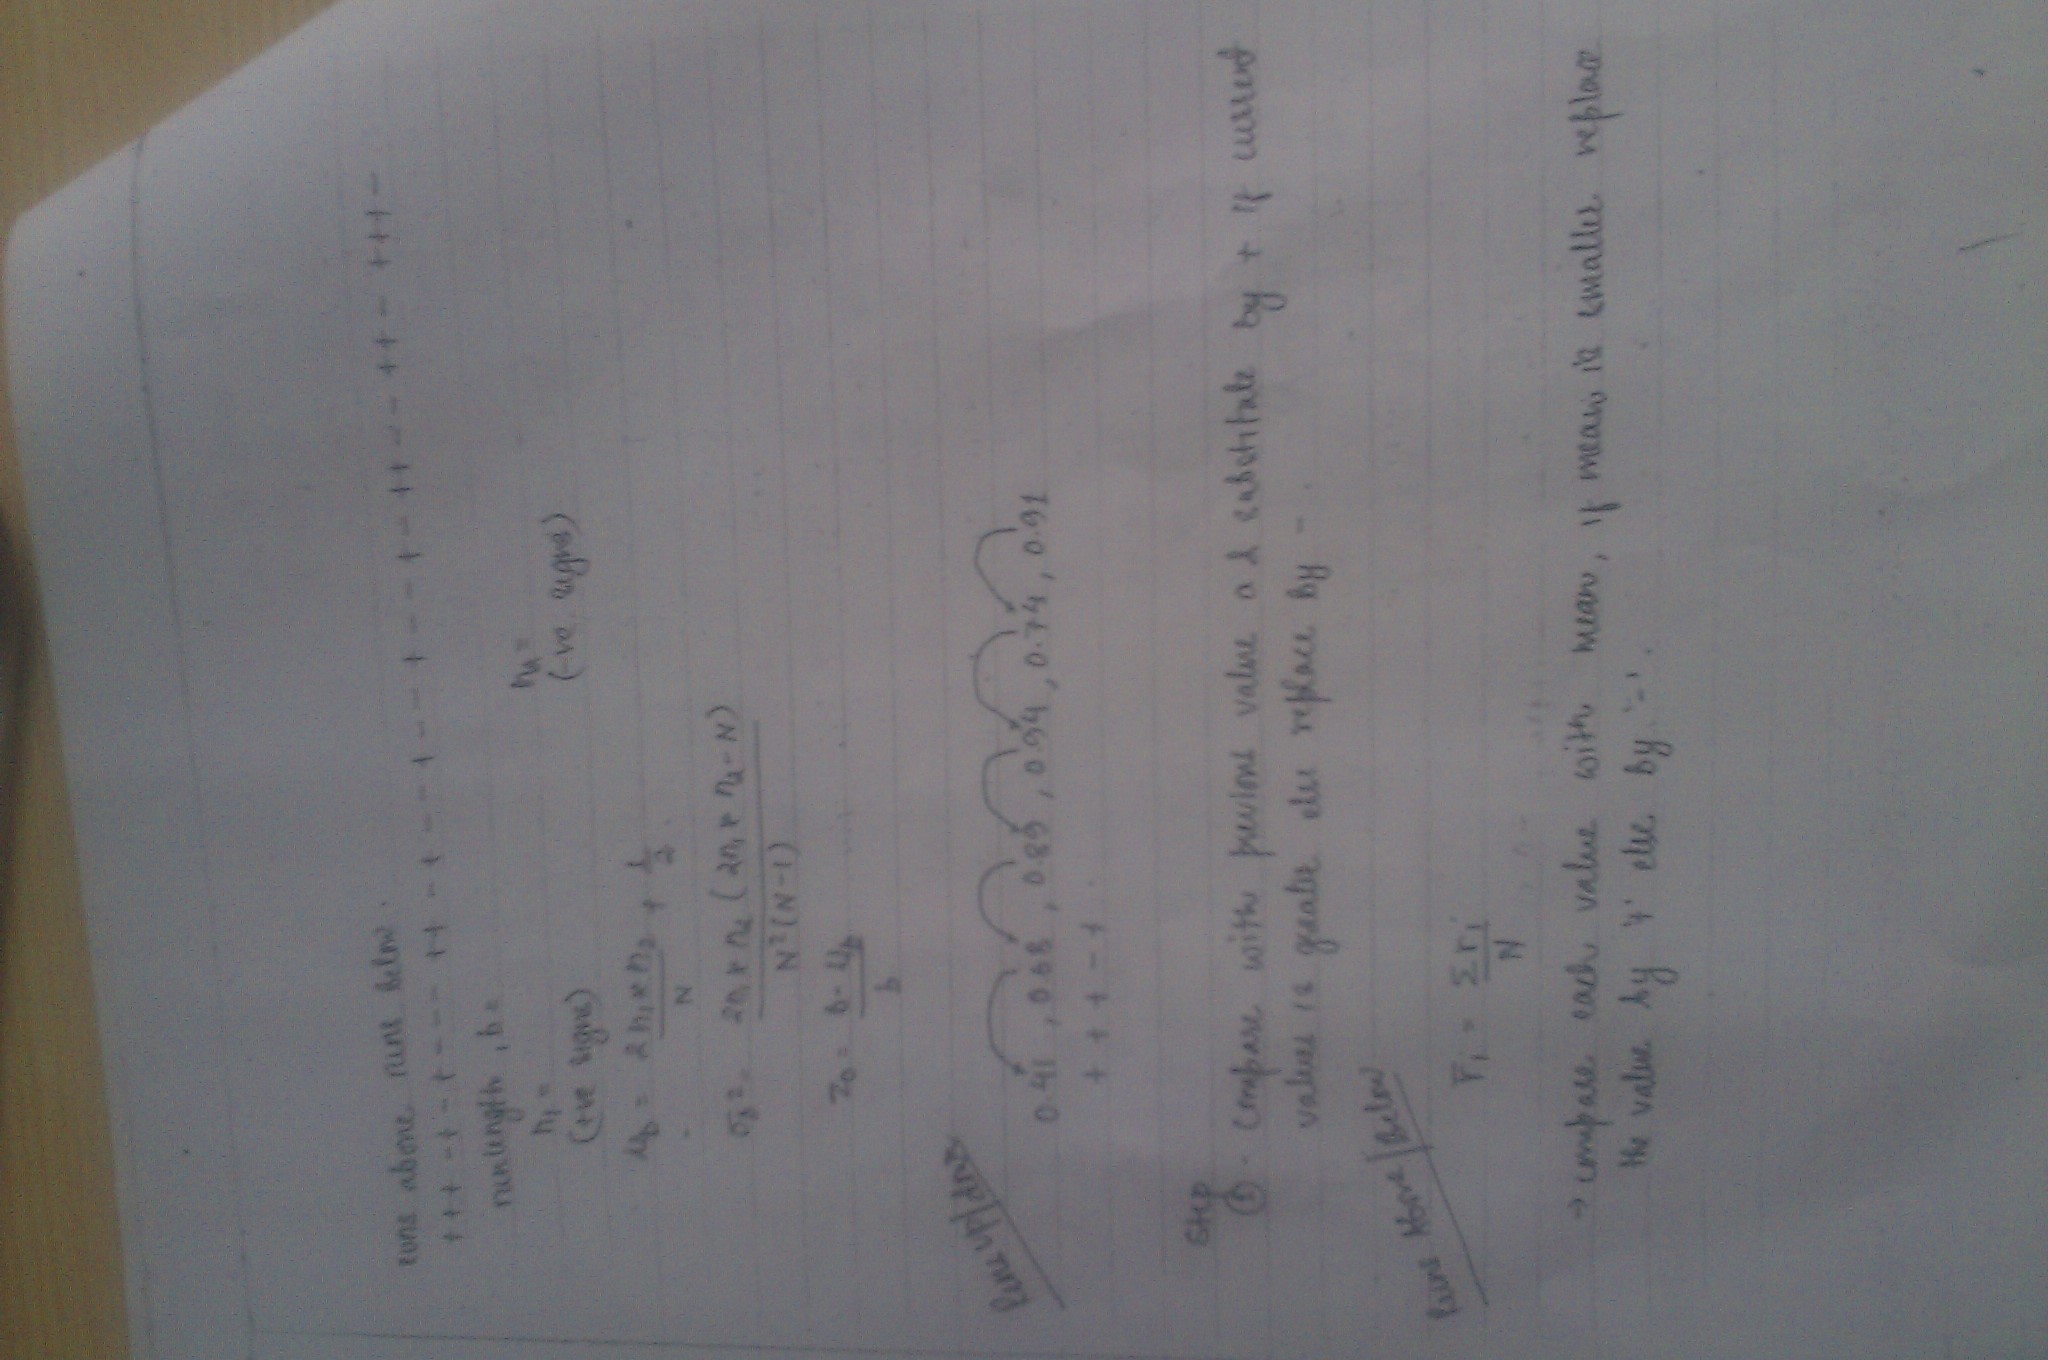 runs above runs below.
+ + + - + - + - - - + + - + - - + - - + - - - + - + + - - + + - + + + -
runlength, b =
n₁ =
(+ve signs)
n₂ =
(-ve signs)
μb = 2n₁*n₂/N + 1/2.
σb² = 2n₁*n₂(2n₁*n₂-N)/N²(N-1)
Z₀ = b-μb/b
Runs up/down
0.41, 0.68, 0.89, 0.94, 0.74, 0.91
+ + + - +
Step
①. Compare with previous value a d substitute by + if current
values is greater else replace by -.
Runs Above/Below
r̄ᵢ = Σrᵢ/N
→ compare each value with mean, if mean is smaller replace
the value by '+' else by '-'.